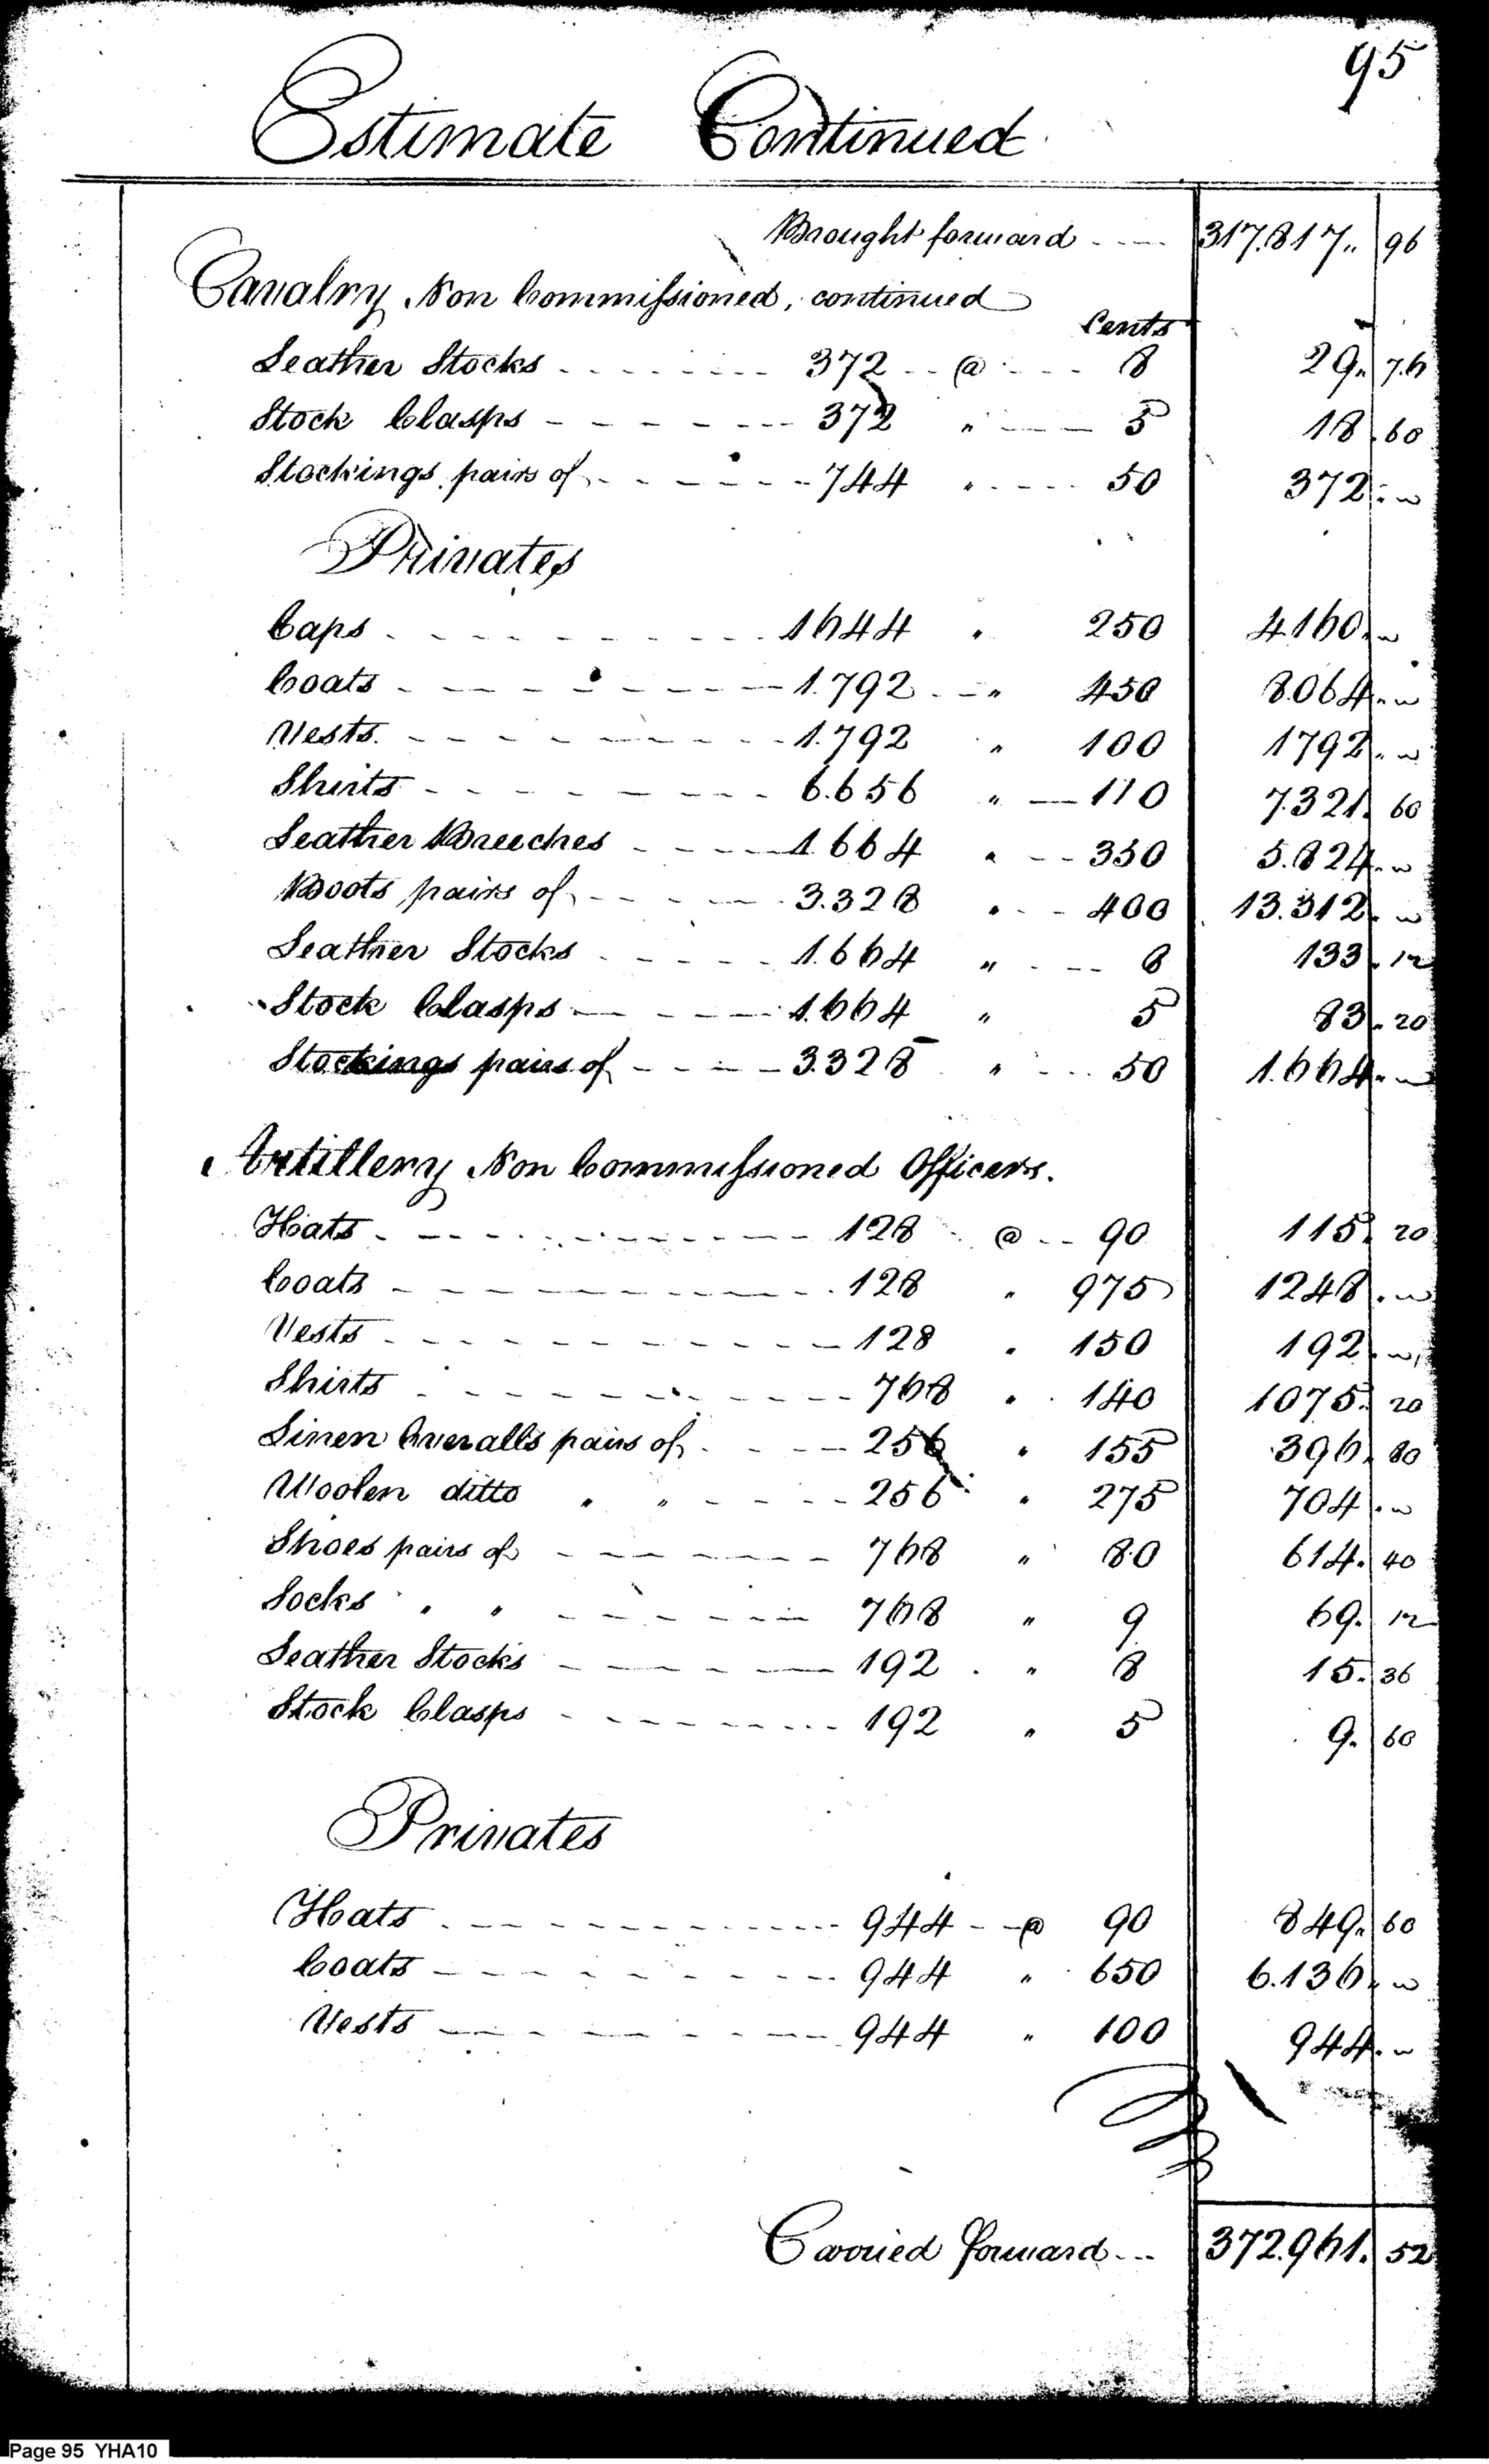 95
Estimate Continued
Brought forward 317.817.. 96
Cavalry Non Commissioned, continued
Cents
Leather Stocks 372 @ 8 29.. 76
Stock Clasps 372 " 5 18. 60
Stockings pairs of 744 " 50 372. "
Privates
Caps 1644 " 250 4160. "
Coats 1.792 " 450 8.064. "
Vests. 1.792 " 100 1792. "
Shirts 6.656 " 110 7.321. 60
Leather Breeches 1.664 " 350 5.824. "
Boots pairs of 3.328 " 400 13.312. "
Leather Stocks 1.664 " 8 133. 12
Stock Clasps 1.664 " 5 83. 20
Stockings pairs of 3.328 " 50 1.664. "
Artillery Non Commissioned Officers.
Hats 128 @ 90 115. 20
Coats 128 " 975 1248. "
Vests 128 " 150 192. "
Shirts 768 " 140 1075. 20
Linen Overalls pairs of 256 " 155 396. 80
Woolen ditto " " 256 " 275 704. "
Shoes pairs of 768 " 80 614. 40
Socks " " 768 " 9 69. 12
Leather Stocks 192 " 8 15. 36
Stock Clasps 192 " 5 9. 60
Privates
Hats 944 @ 90 849. 60
Coats 944 " 650 6.136. "
Vests 944 " 100 944. "
Carried forward 372.961. 52
Page 95 YHA10